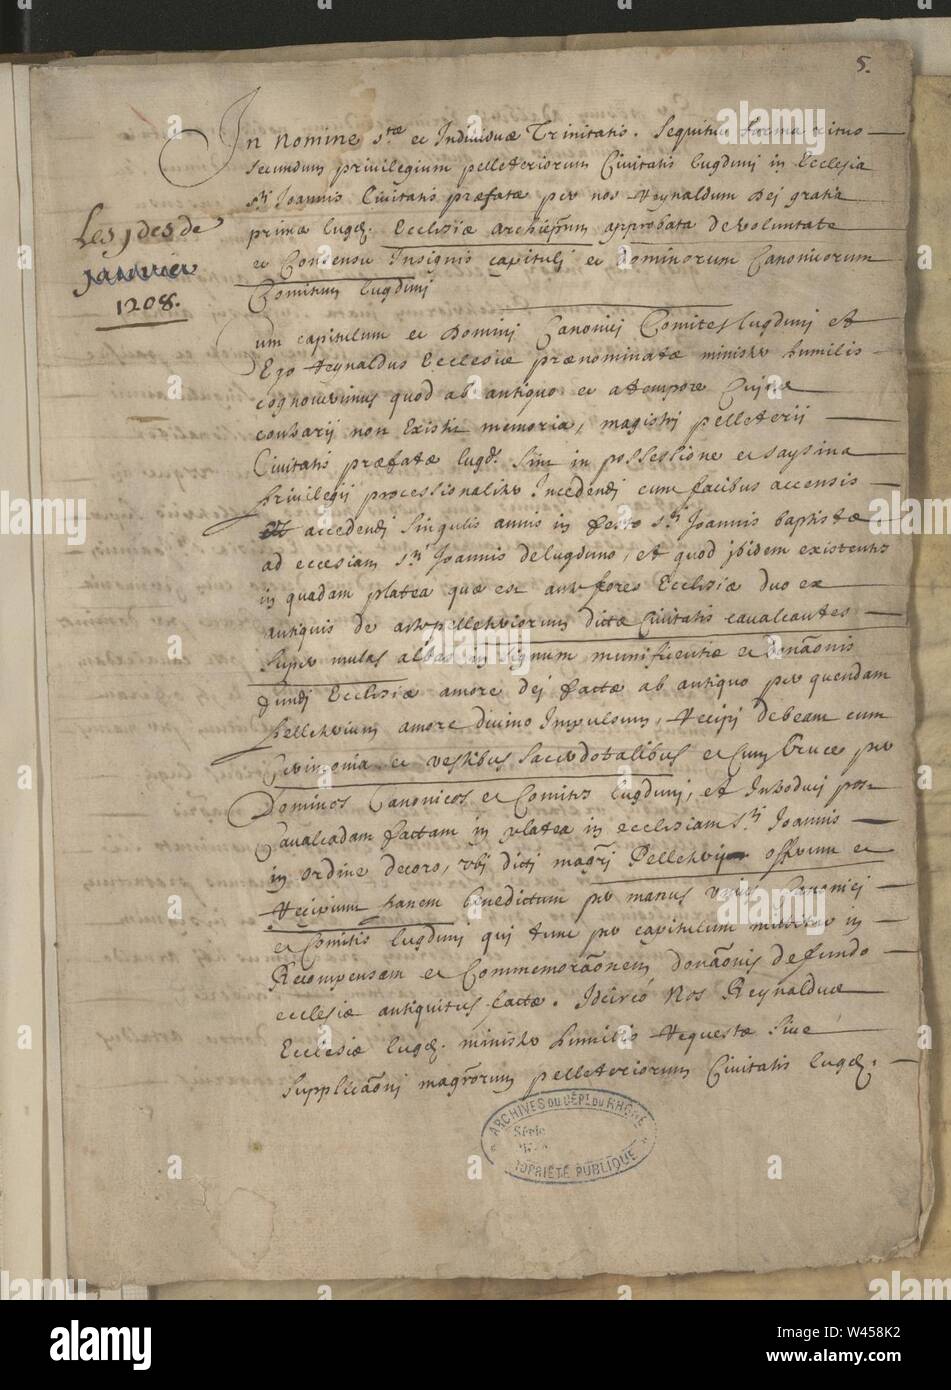 5.
In nomine s.tæ et Individuæ Trinitatis. Sequitur forma
secundum privilegium pelleteriorum Civitatis lugduni in Ecclesia
s.ti Joannis Civitatis præfatæ per nos Reynaldum Dei gratia
primæ lugd. Ecclesiæ archiepum approbata de voluntate
et Consensu Insignis capitulj et Dominorum Canonicorum
Comitum lugdunj
Les jdes de
januier
1208.
Cum capitulum et Dominj Canonicj Comites lugdunj et
Ego Reynaldus Ecclesiæ prænominatæ minister humilis
cognoverimus quod ab antiquo et a tempore Cujus
contrarij non Existit memoria, magistrj pelleterij
Civitatis præfatæ lugd. sint in possessione et saysina
privilegij processionaliter Incedendj cum facibus accensis
et accedendj singulis annis in festo s.ti Joannis baptistæ
ad eccesiam s.ti Joannis de lugduno, et quod jbidem existentes
in quadam platea quæ est ante fores Ecclesiæ duo ex
antiquis de arte pelleteriorum dictæ Civitatis cavalcantes
super mulas albas in signum munificentiæ et donãonis
fundj Ecclesiæ amore dej factæ ab antiquo per quendam
pelleterium amore divino Impulsum, Recipj debeant cum
Cerimonia et vestibus sacerdotalibus et cum Cruce per
Dominos Canonicos et Comites lugdunj, et Introducj post
Cavalcadam factam in platea in ecclesiam s.ti Joannis
in ordine decoro, vbj dictj magrj Pelleterij offerunt et
Recipiunt panem benedictum per manus vnius Canonicj
et Comitis lugdunj qui tunc per capitulum mittitur in
Recompensam et Commemorãonem donãonis de fundo
ecclesiæ antiquitus factæ. Idcircò Nos Reynaldus
Ecclesiæ lugd. minister humilis Requestæ sive
supplicãonj magrorum pelleteriorum Civitatis lugd.
ARCHIVES DU DÉPT. DU RHÔNE
Série
PROPRIÉTÉ PUBLIQUE
alamy
Image ID: W458K2
www.alamy.com